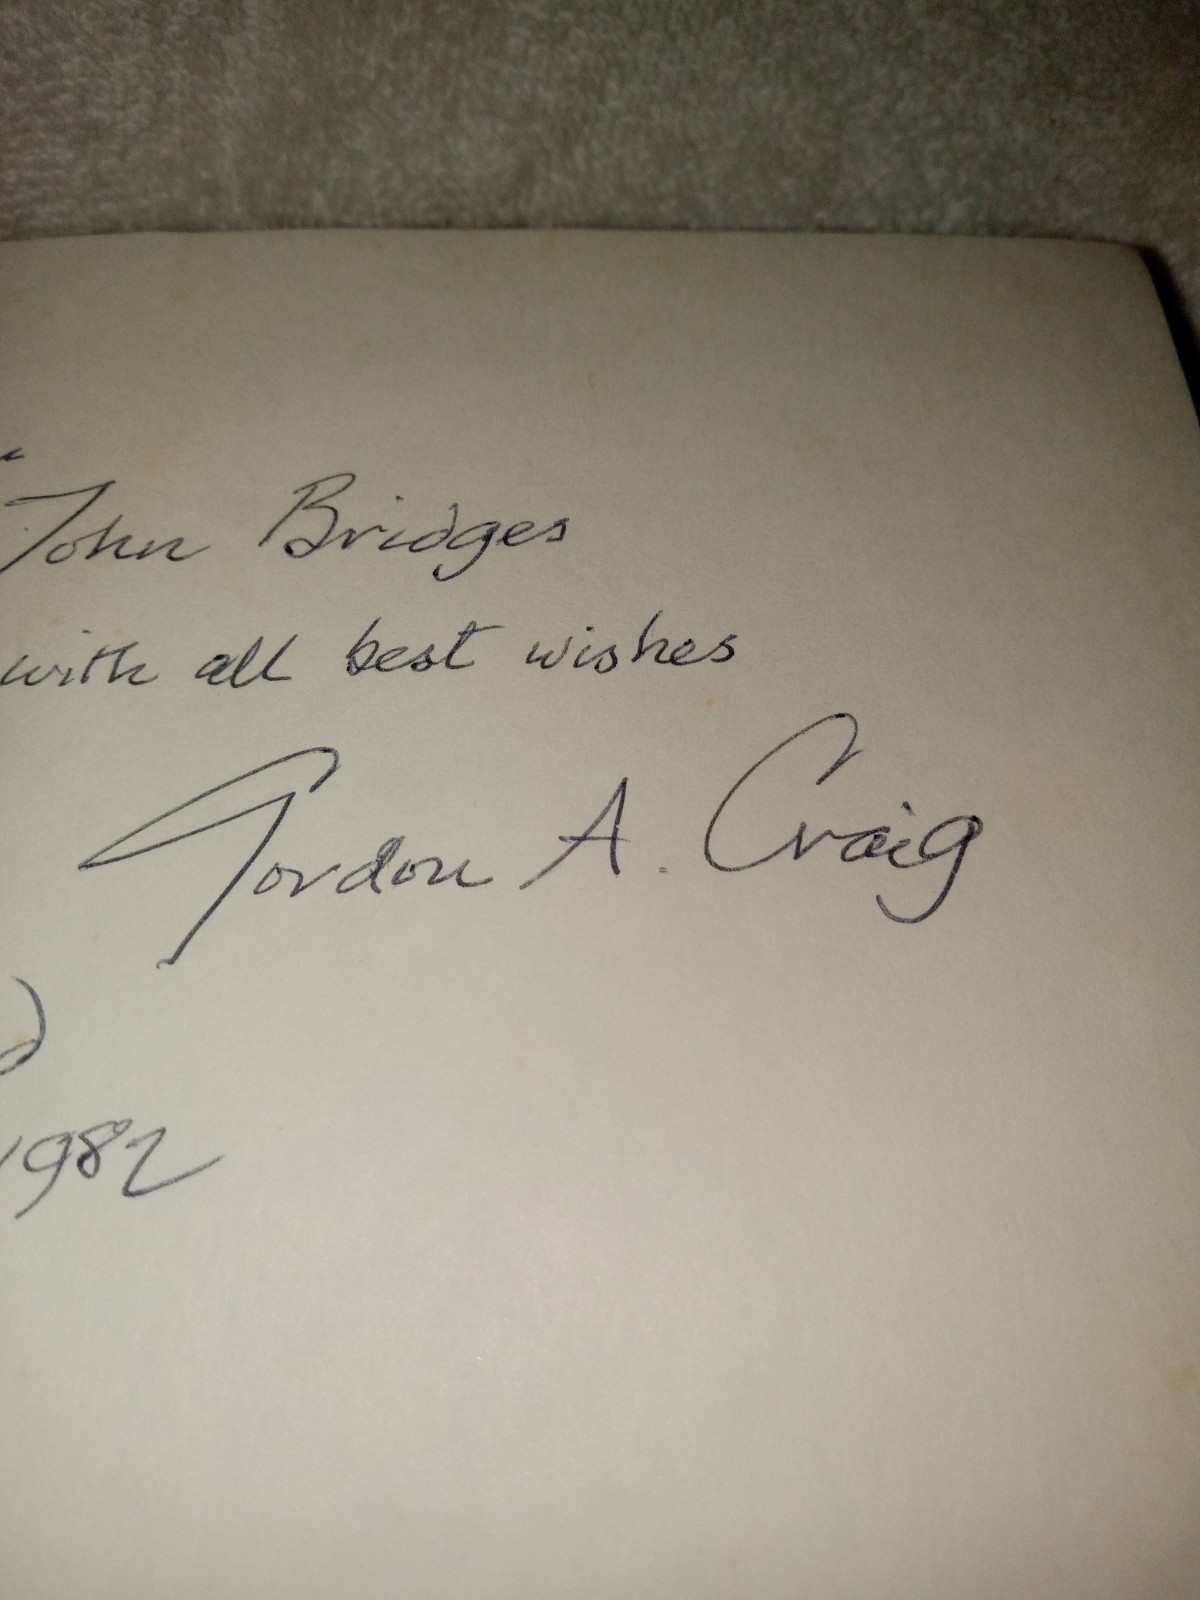 John Bridges
with all best wishes
Gordon A. Craig
1982